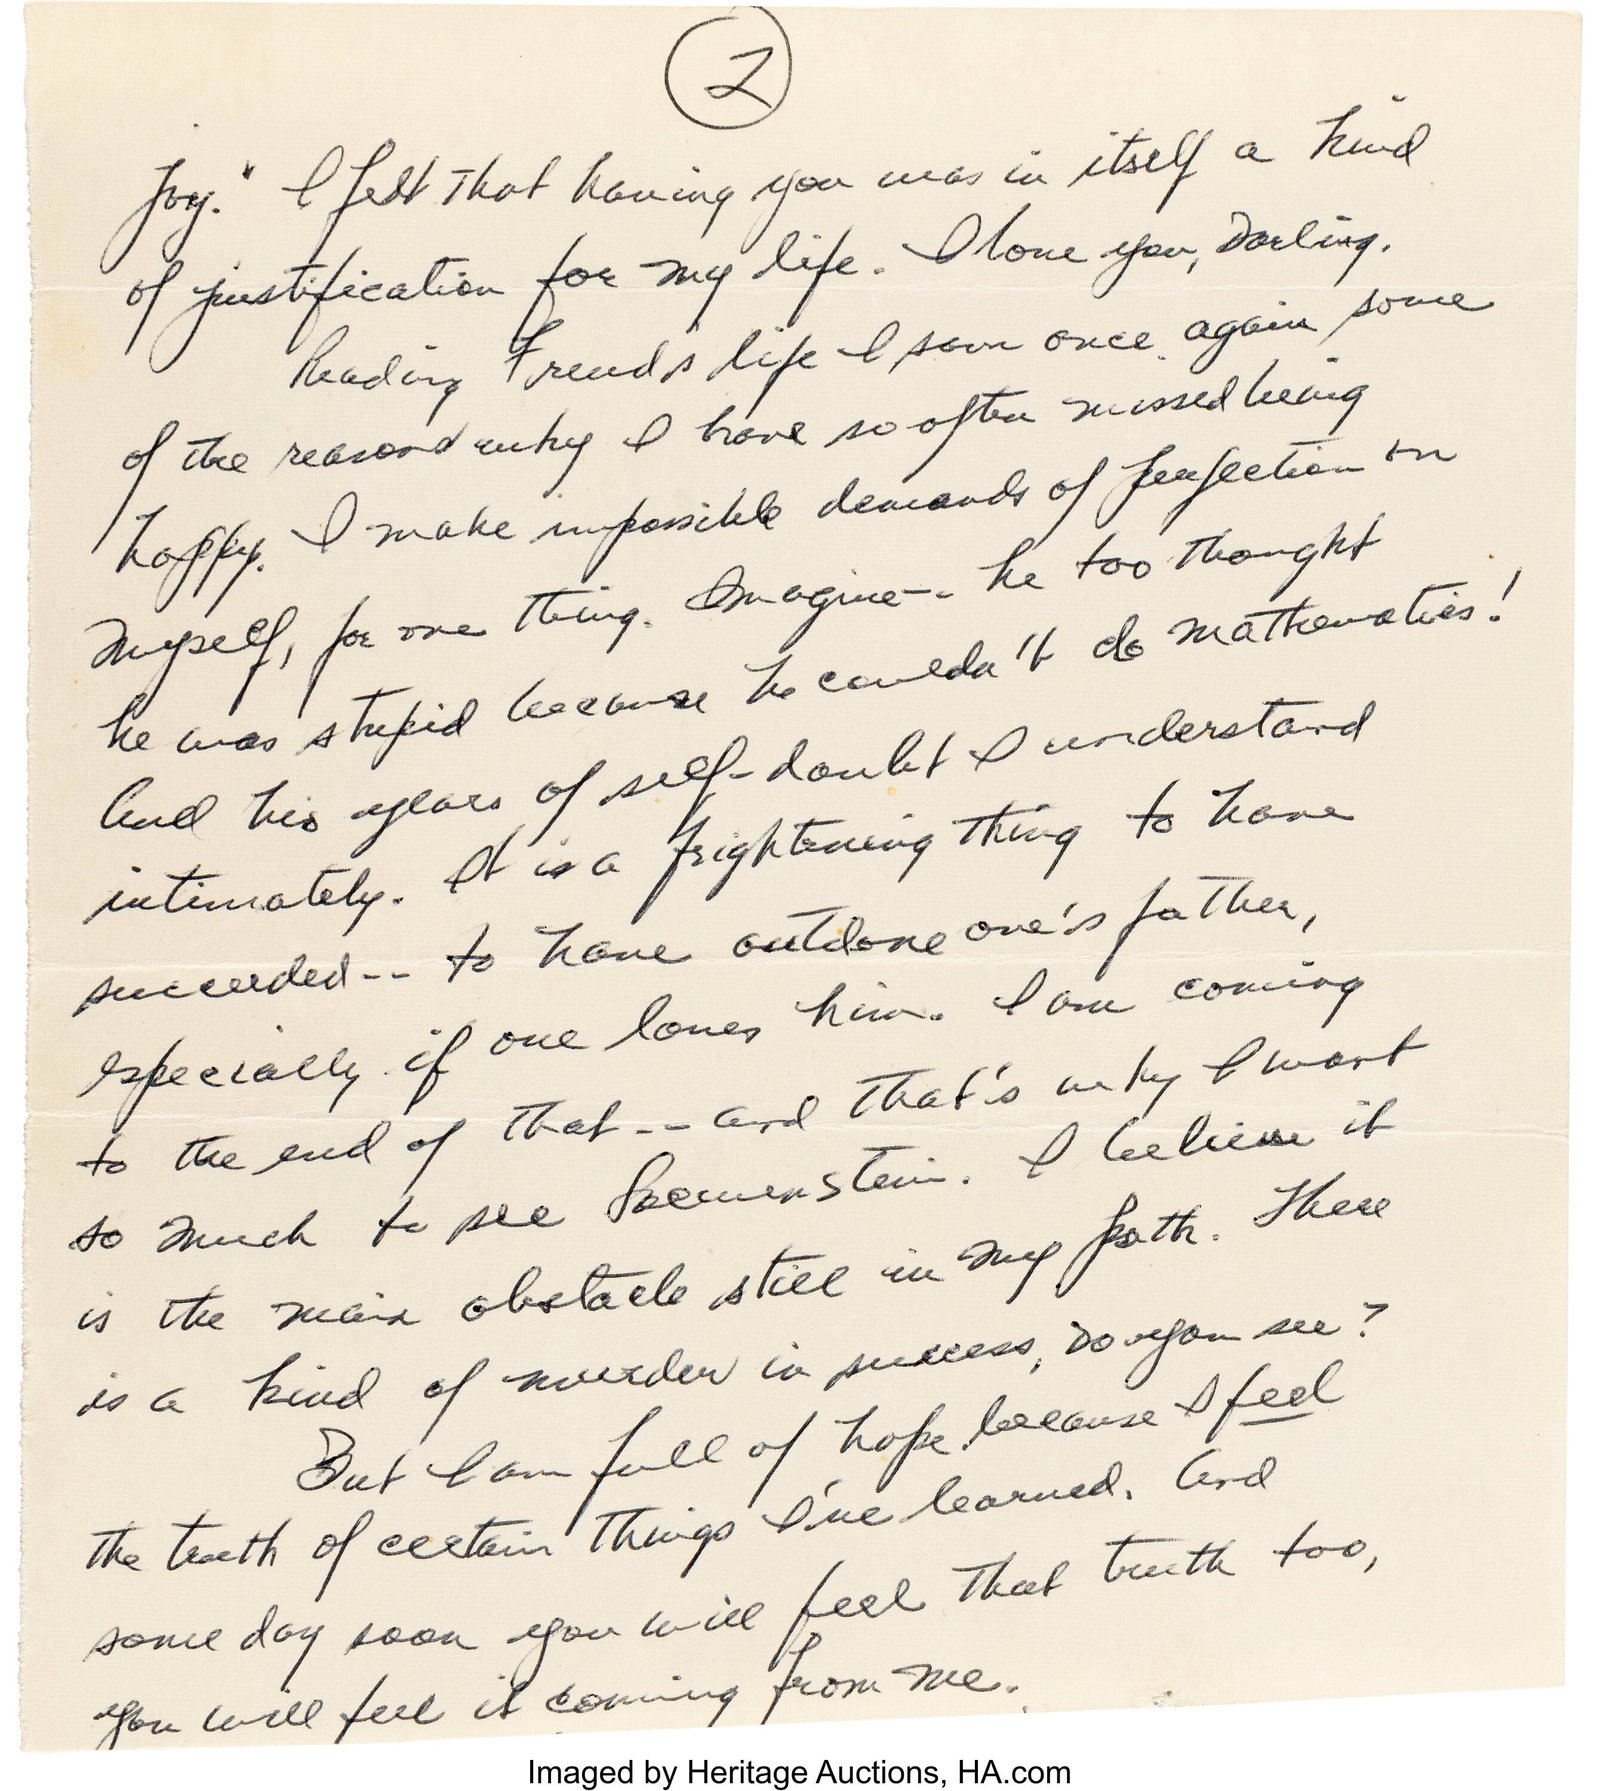 2
joy." I felt that having you was in itself a kind
of justification for my life. I love you, Darling.
Reading Freud's life I saw once again some
of the reasons why I have so often missed being
happy. I make impossible demands of perfection on
myself, for one thing. Imagine-- he too thought
he was stupid because he couldn't do mathematics!
And his years of self-doubt I understand
intimately. It is a frightening thing to have
succeeded-- to have outdone one's father,
especially if one loves him. I am coming
to the end of that -- and that's why I want
so much to see Loewenstein. I believe it
is the main obstacle still in my path. There
is a kind of murder in success, do you see?
But I am full of hope because I feel
the truth of certain things I've learned. And
some day soon you will feel that truth too,
you will feel it coming from me.
Imaged by Heritage Auctions, HA.com